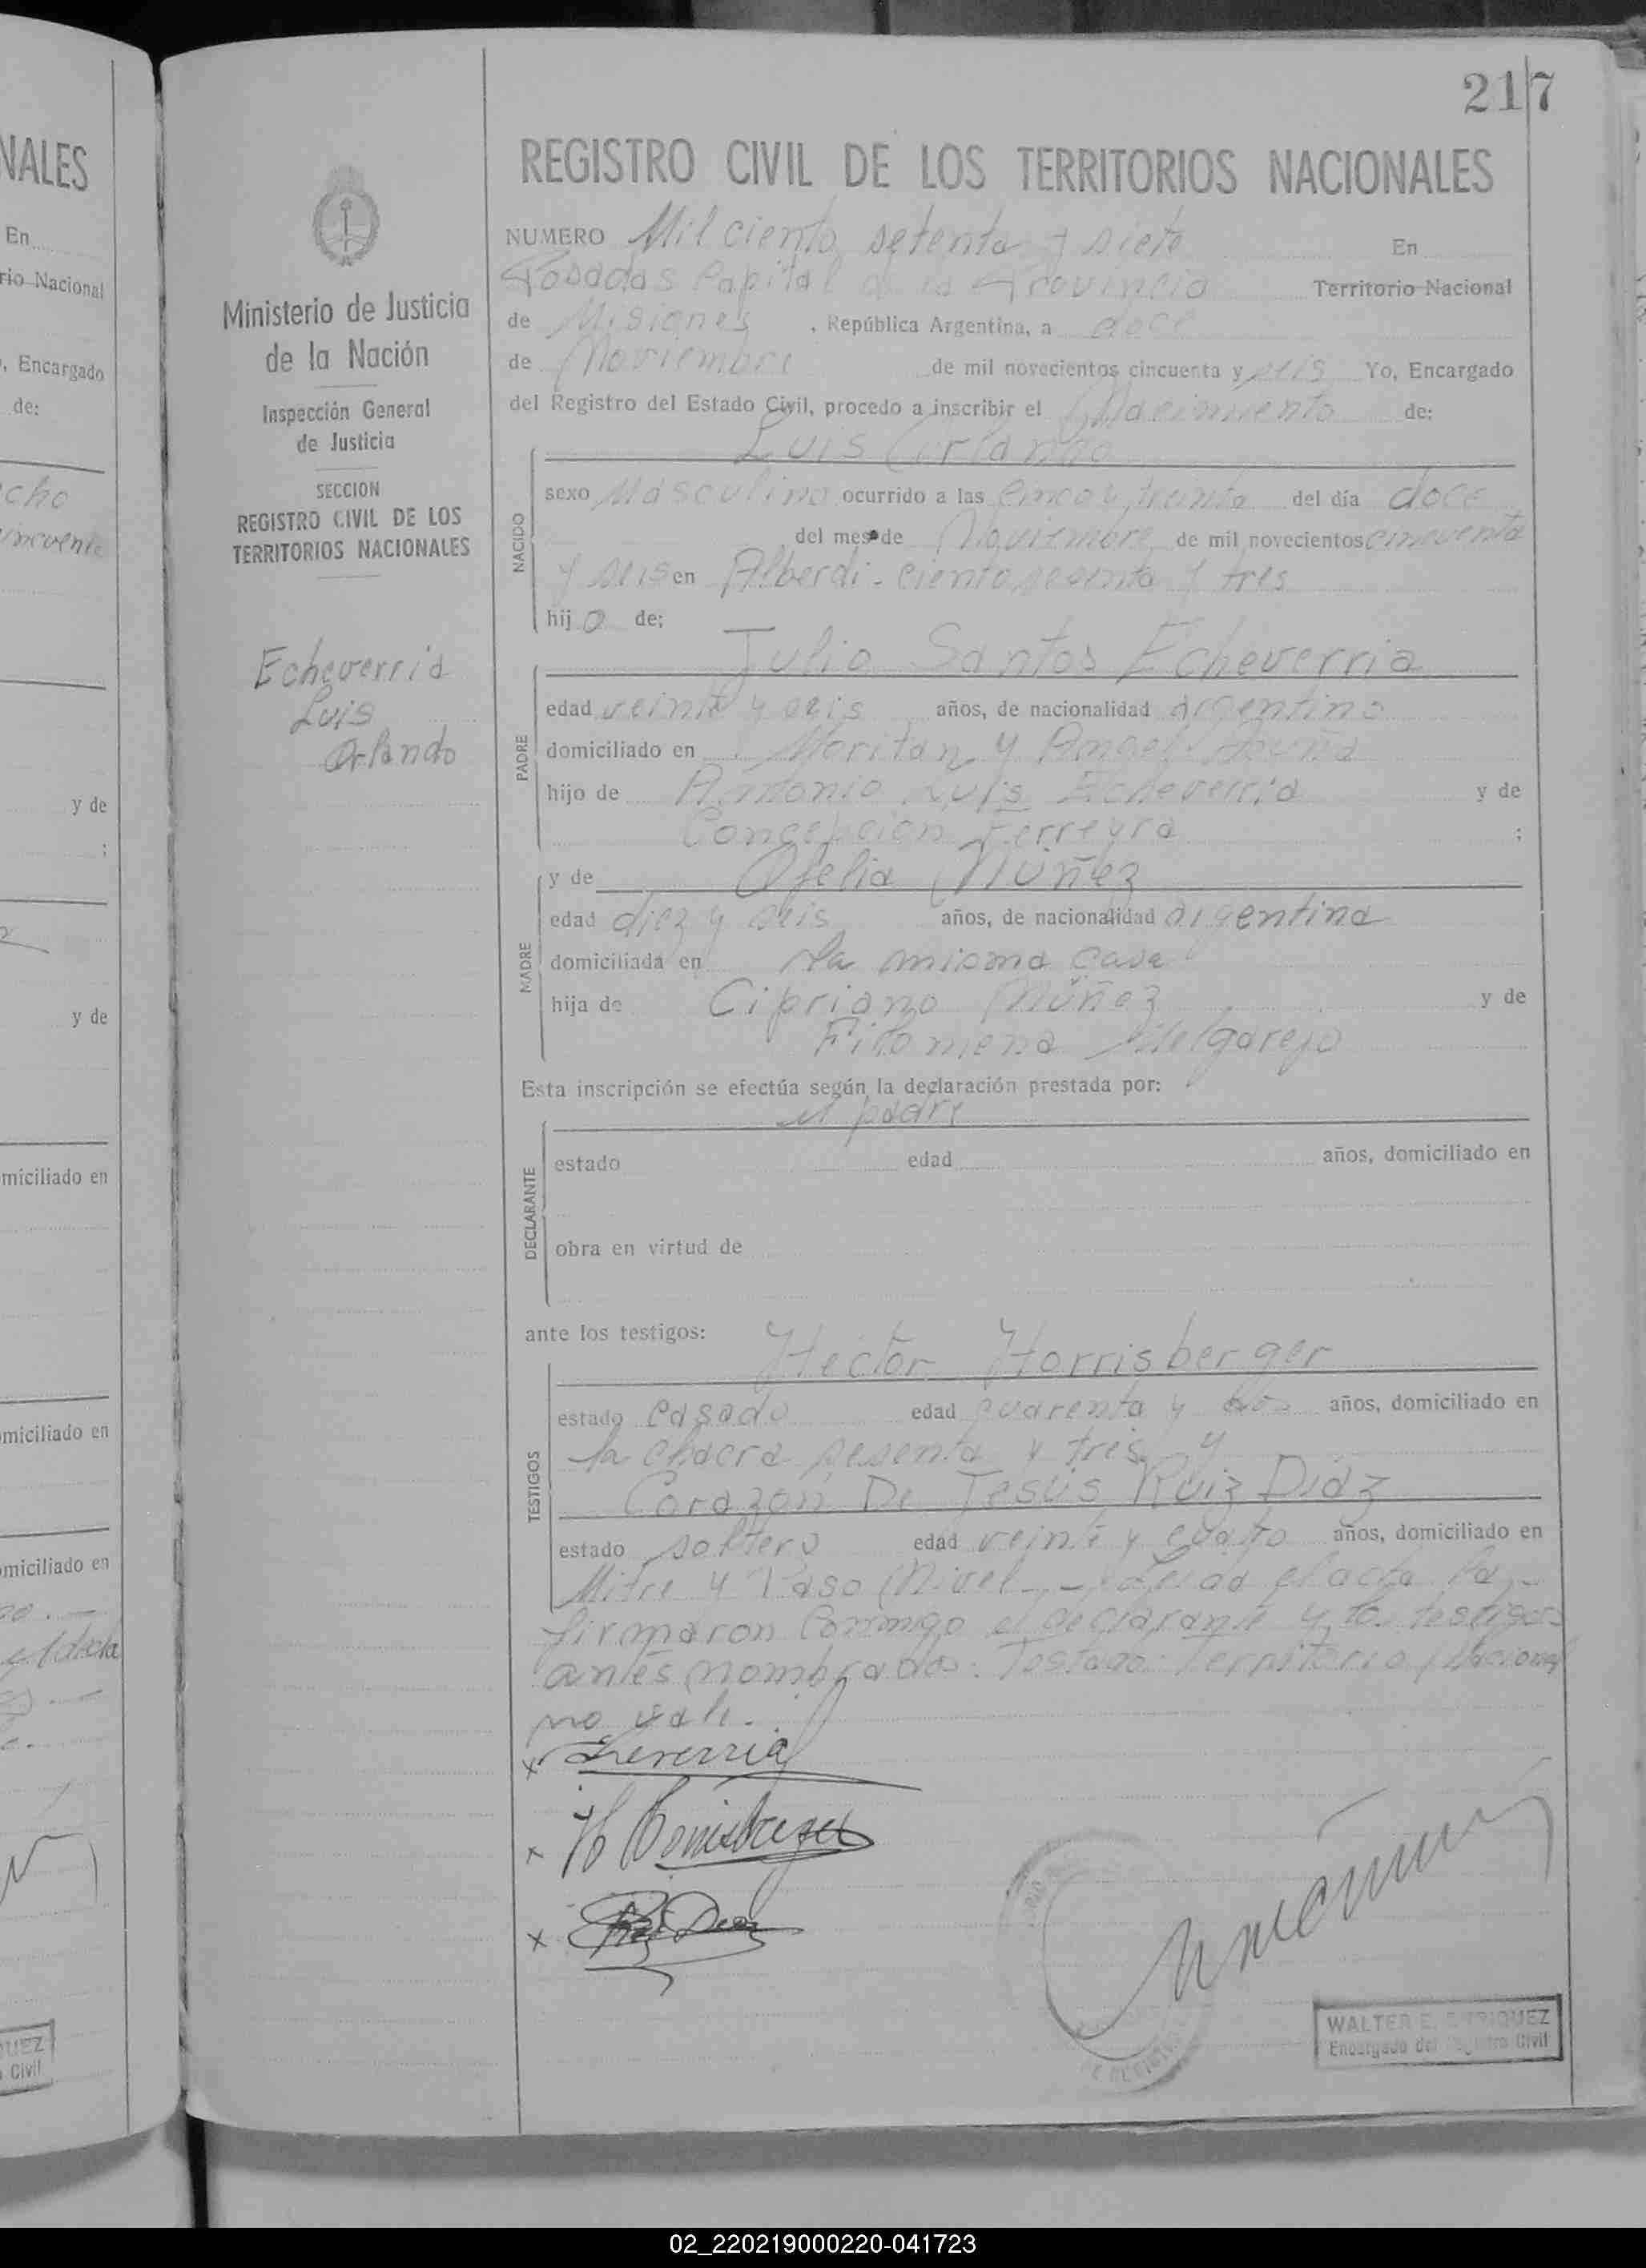 NALES
En
rio Nacional
, Encargado
de:
cho
y de
;
y de
miciliado en
omiciliado en
omiciliado en
QUEZ
Civil
Ministerio de Justicia
de la Nación
Inspección General
de Justicia
SECCION
REGISTRO CIVIL DE LOS
TERRITORIOS NACIONALES
Echeverria
Luis
Orlando
217
REGISTRO CIVIL DE LOS TERRITORIOS NACIONALES
NUMERO Mil ciento setenta y siete En
Posadas Capital de la Provincia Territorio Nacional
de Misiones, República Argentina, a doce
de Noviembre de mil novecientos cincuenta y seis Yo, Encargado
del Registro del Estado Civil, procedo a inscribir el Nacimiento de:
Luis Orlando
NACIDO
sexo Masculino ocurrido a las cinco y treinta del día doce
del mes de Noviembre de mil novecientos cincuenta
y seis en Alberdi - ciento sesenta y tres
hijo de:
Julio Santos Echeverria
PADRE
edad veinte y seis años, de nacionalidad argentino
domiciliado en y Angel Acuña
hijo de Antonio Luis Echeverria y de
Concepcion Ferreyra ;
y de Ofelia Núñez
MADRE
edad diez y seis años, de nacionalidad argentina
domiciliada en la misma casa
hija de Cipriano Núñez y de
Filomena Melgarejo
Esta inscripción se efectúa según la declaración prestada por:
el padre
DECLARANTE
estado edad años, domiciliado en
obra en virtud de
ante los testigos:
Hector Horrisberger
TESTIGOS
estado casado edad cuarenta y dos años, domiciliado en
la chacra sesenta y tres y
Corazón De Jesús Ruiz Díaz
estado soltero edad veinte y cuatro años, domiciliado en
Mitre y Paso Nivel - Leida el acta la
firmaron conmigo el declarante y los testigos
antes nombrados. Testado: Territorio Nacional
no vale.
x Echeverria
x H Horrisberger
x Ruiz Diaz
WALTER E. ENRIQUEZ
Encargado del Registro Civil
02_220219000220-041723